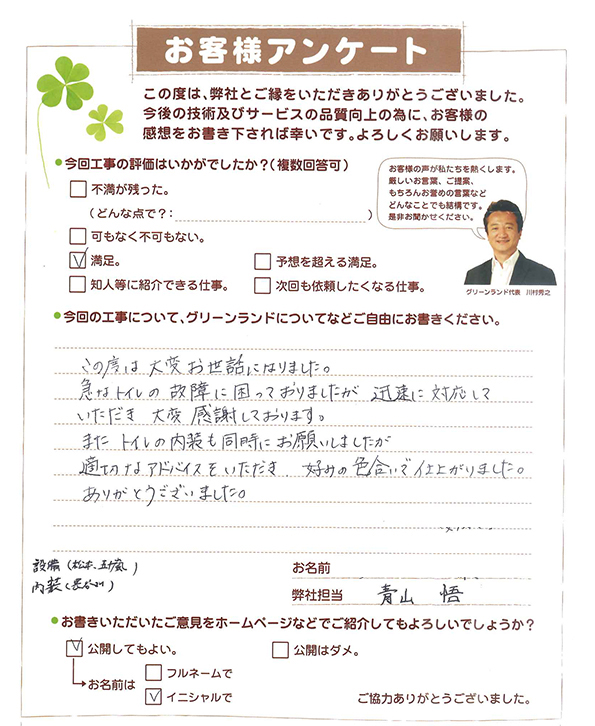 お客様アンケート
この度は、弊社とご縁をいただきありがとうございました。
今後の技術及びサービスの品質向上の為に、お客様の
感想をお書き下されば幸いです。よろしくお願いします。
今回工事の評価はいかがでしたか?(複数回答可)
不満が残った。
(どんな点で?: )
可もなく不可もない。
満足。 予想を超える満足。
知人等に紹介できる仕事。 次回も依頼したくなる仕事。
お客様の声が私たちを熱くします。
厳しいお言葉、ご提案、
もちろんお誉めの言葉など
どんなことでも結構です。
是非お聞かせください。
グリーンランド代表 川村秀之
今回の工事について、グリーンランドについてなどご自由にお書きください。
この度は 大変お世話になりました。
急なトイレの故障に困っておりましたが 迅速に対応して
いただき 大変感謝しております。
また トイレの内装も同時にお願いしましたが
適切なアドバイスをいただき 好みの色合いで仕上がりました。
ありがとうございました。
設備(松本、五十嵐)
内装(長谷川)
お名前
弊社担当 青山 悟
お書きいただいたご意見をホームページなどでご紹介してもよろしいでしょうか?
公開してもよい。 公開はダメ。
お名前は フルネームで
イニシャルで
ご協力ありがとうございました。